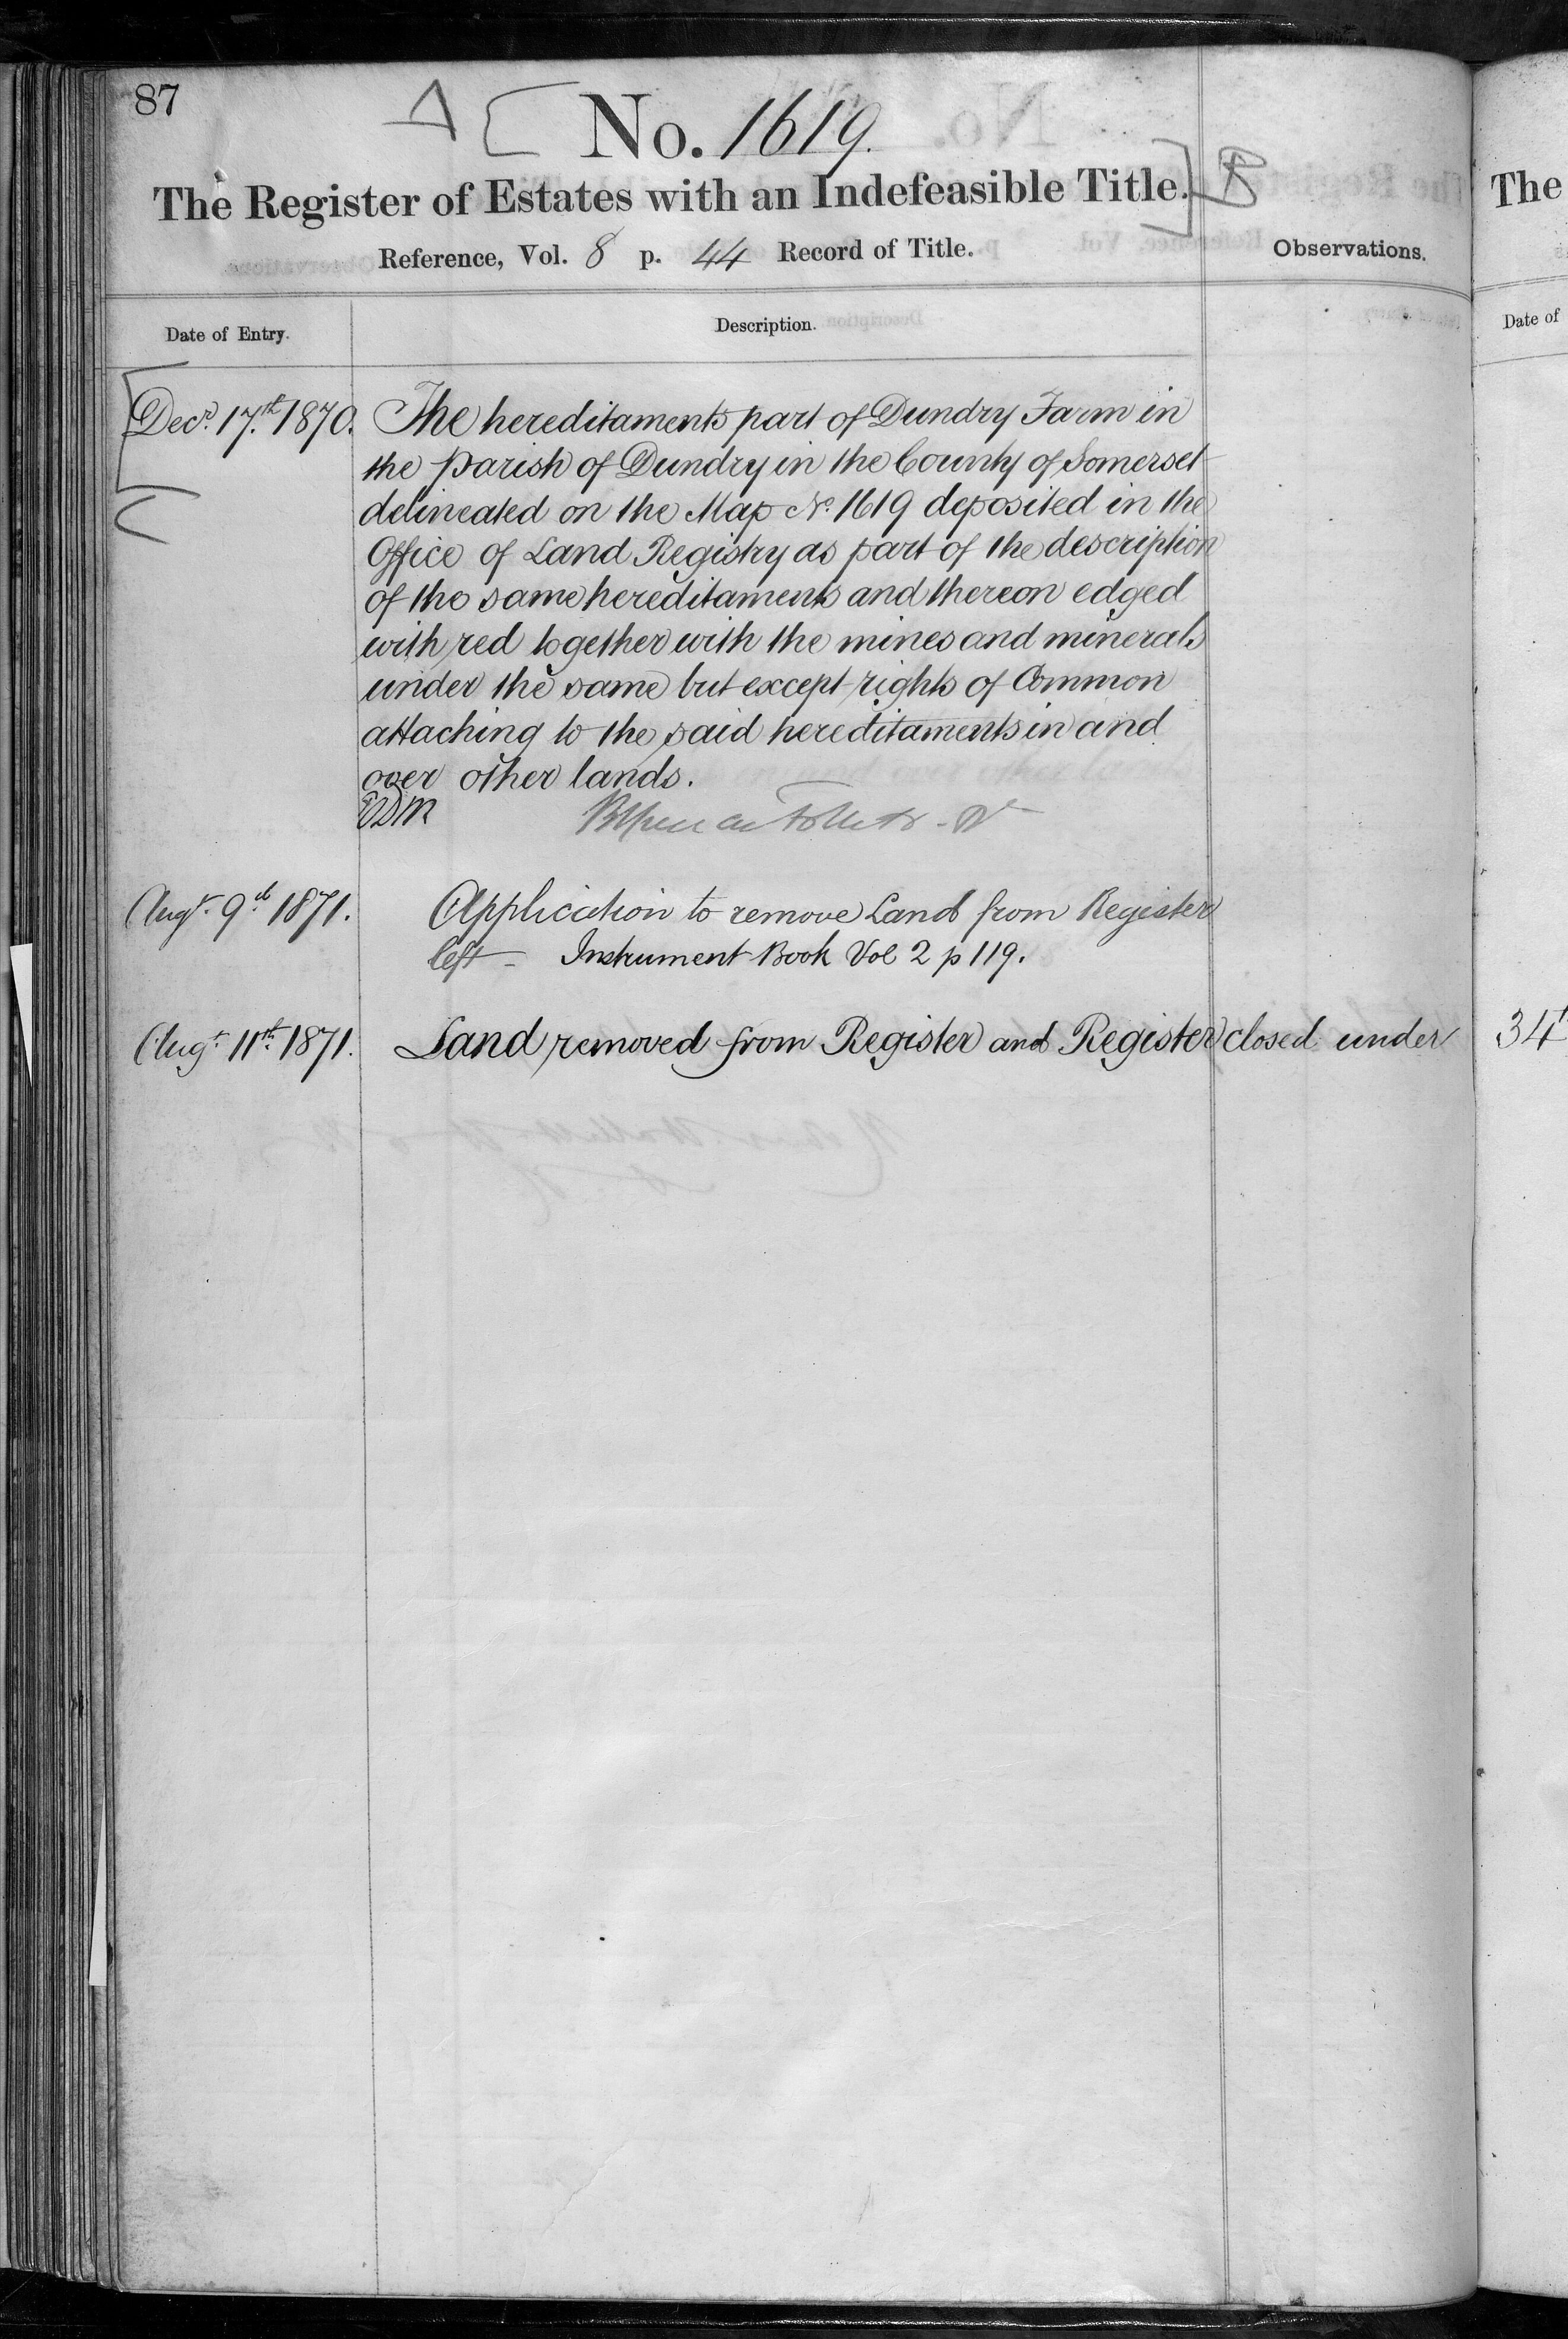 87
A
No. 1619.
The Register of Estates with an Indefeasible Title.
B
Reference, Vol. 8 p. 44 Record of Title.
Observations.
Date of Entry.
Description.
Decr. 17th. 1870.
The hereditaments part of Dundry Farm in
the parish of Dundry in the County of Somerset
delineated on the Map No. 1619 deposited in the
Office of Land Registry as part of the description
of the same hereditaments and thereon edged
with red together with the mines and minerals
under the same but except rights of Common
attaching to the said hereditaments in and
over other lands.
C
Augt. 9th 1871.
Application to remove Land from Register
left - Instrument Book Vol 2 p 119.
Augt. 11th. 1871.
Land removed from Register and Register closed under
The
Date of
34